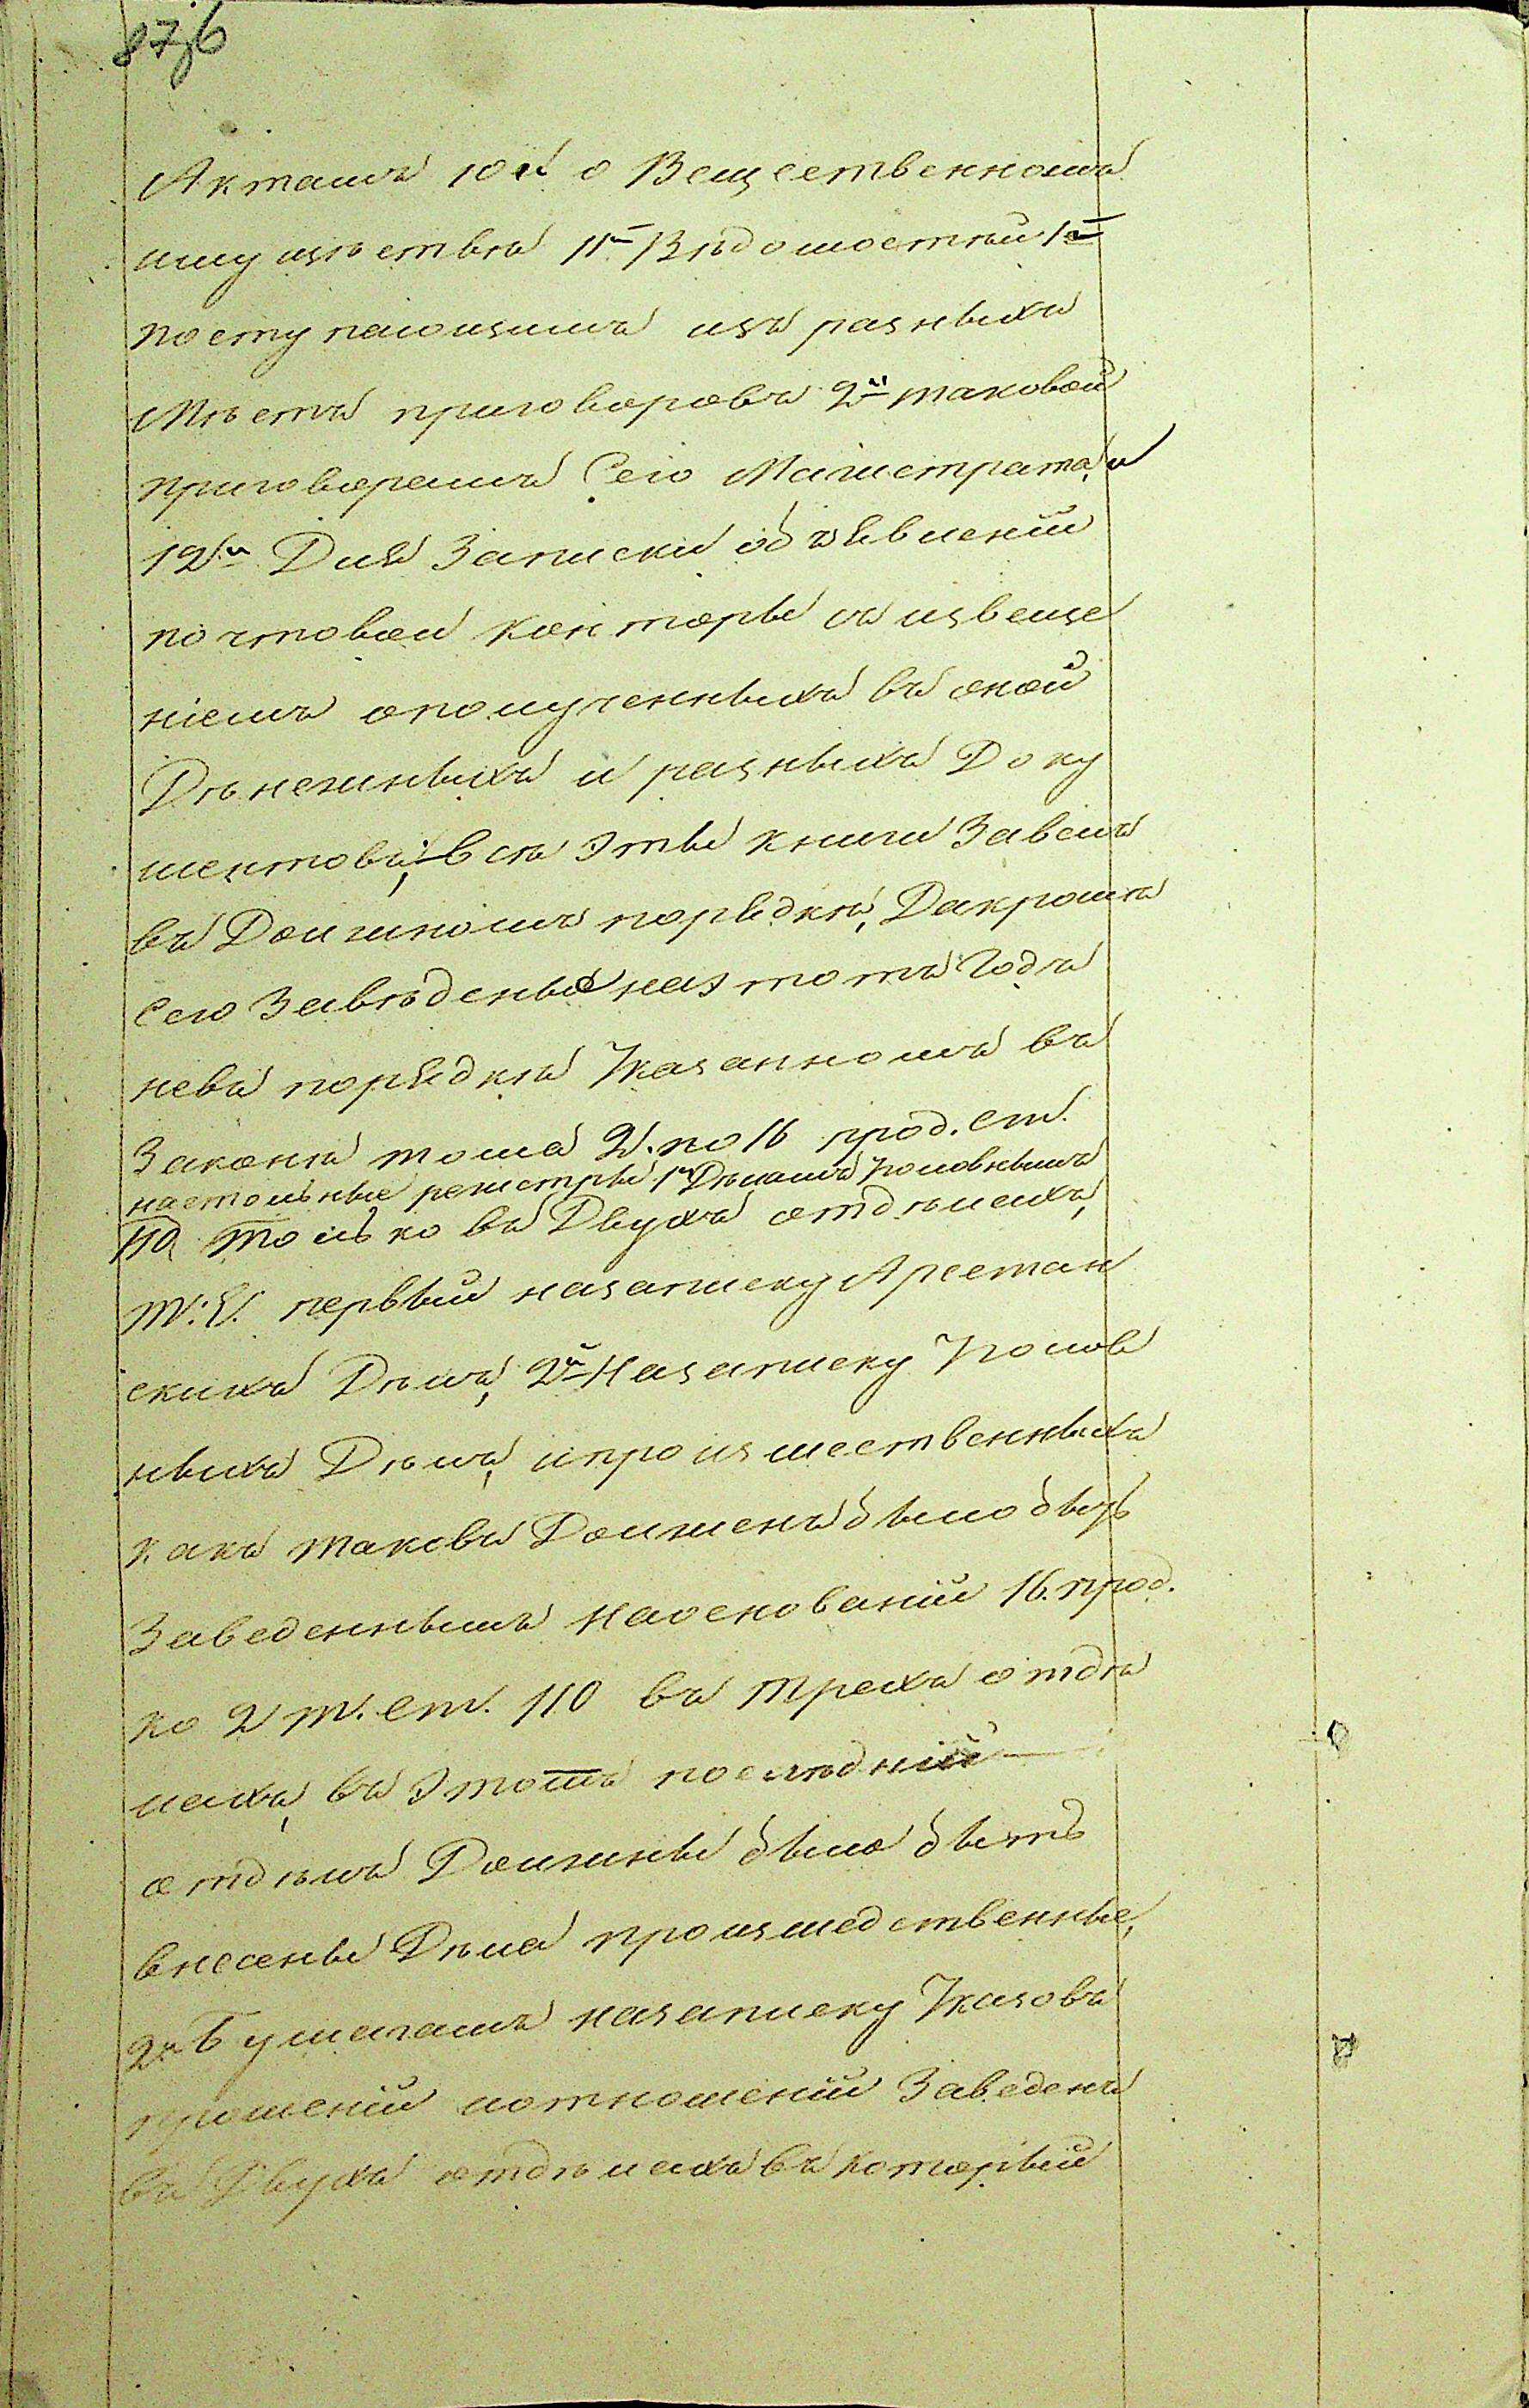 876
Актамъ 10я о Вещественномъ
имущѣствѣ 11я Вѣдомостѣй 1я
поступающимъ изъ разныхъ
Мѣстъ приговоровъ 2й таковой
приговорамъ Сего Магистрата, и
12я Для Записки объявленій
почтовой конторы съ извеще
ніемъ ополученныхъ въ оной
Дѣнежныхъ и разныхъ Доку
ментовъ; всѣ Эты книги Завѣлъ
въ Должномъ порядкѣ, Дакромѣ
сего Завѣдены на этотъ Годъ
невъ порядкѣ Указанномъ въ
Законѣ тома 2. по 16 прод. ст.
настольные регистры 1й Дѣламъ Уголовнымъ
110 только въ Двухъ отдѣлехъ,
Т: Е. первый назаписку Арестан
скихъ Дѣлъ, 2й Назаписку Уголов
ныхъ Дѣлъ, ипроизшественныхъ
какъ таковъ Долженъ было быть
Заведеннымъ Наоснованіи 16. прод.
ко 2 т. ст. 110 въ трехъ отдѣ
лехъ, въ Этотъ послѣдній
отдѣлъ Должны было быть
внесены Дѣла произшедственные,
2й Бумагамъ назаписку Указовъ
прошеній иотношеній Заведенъ
въ Двухъ отдѣлахъ въ который